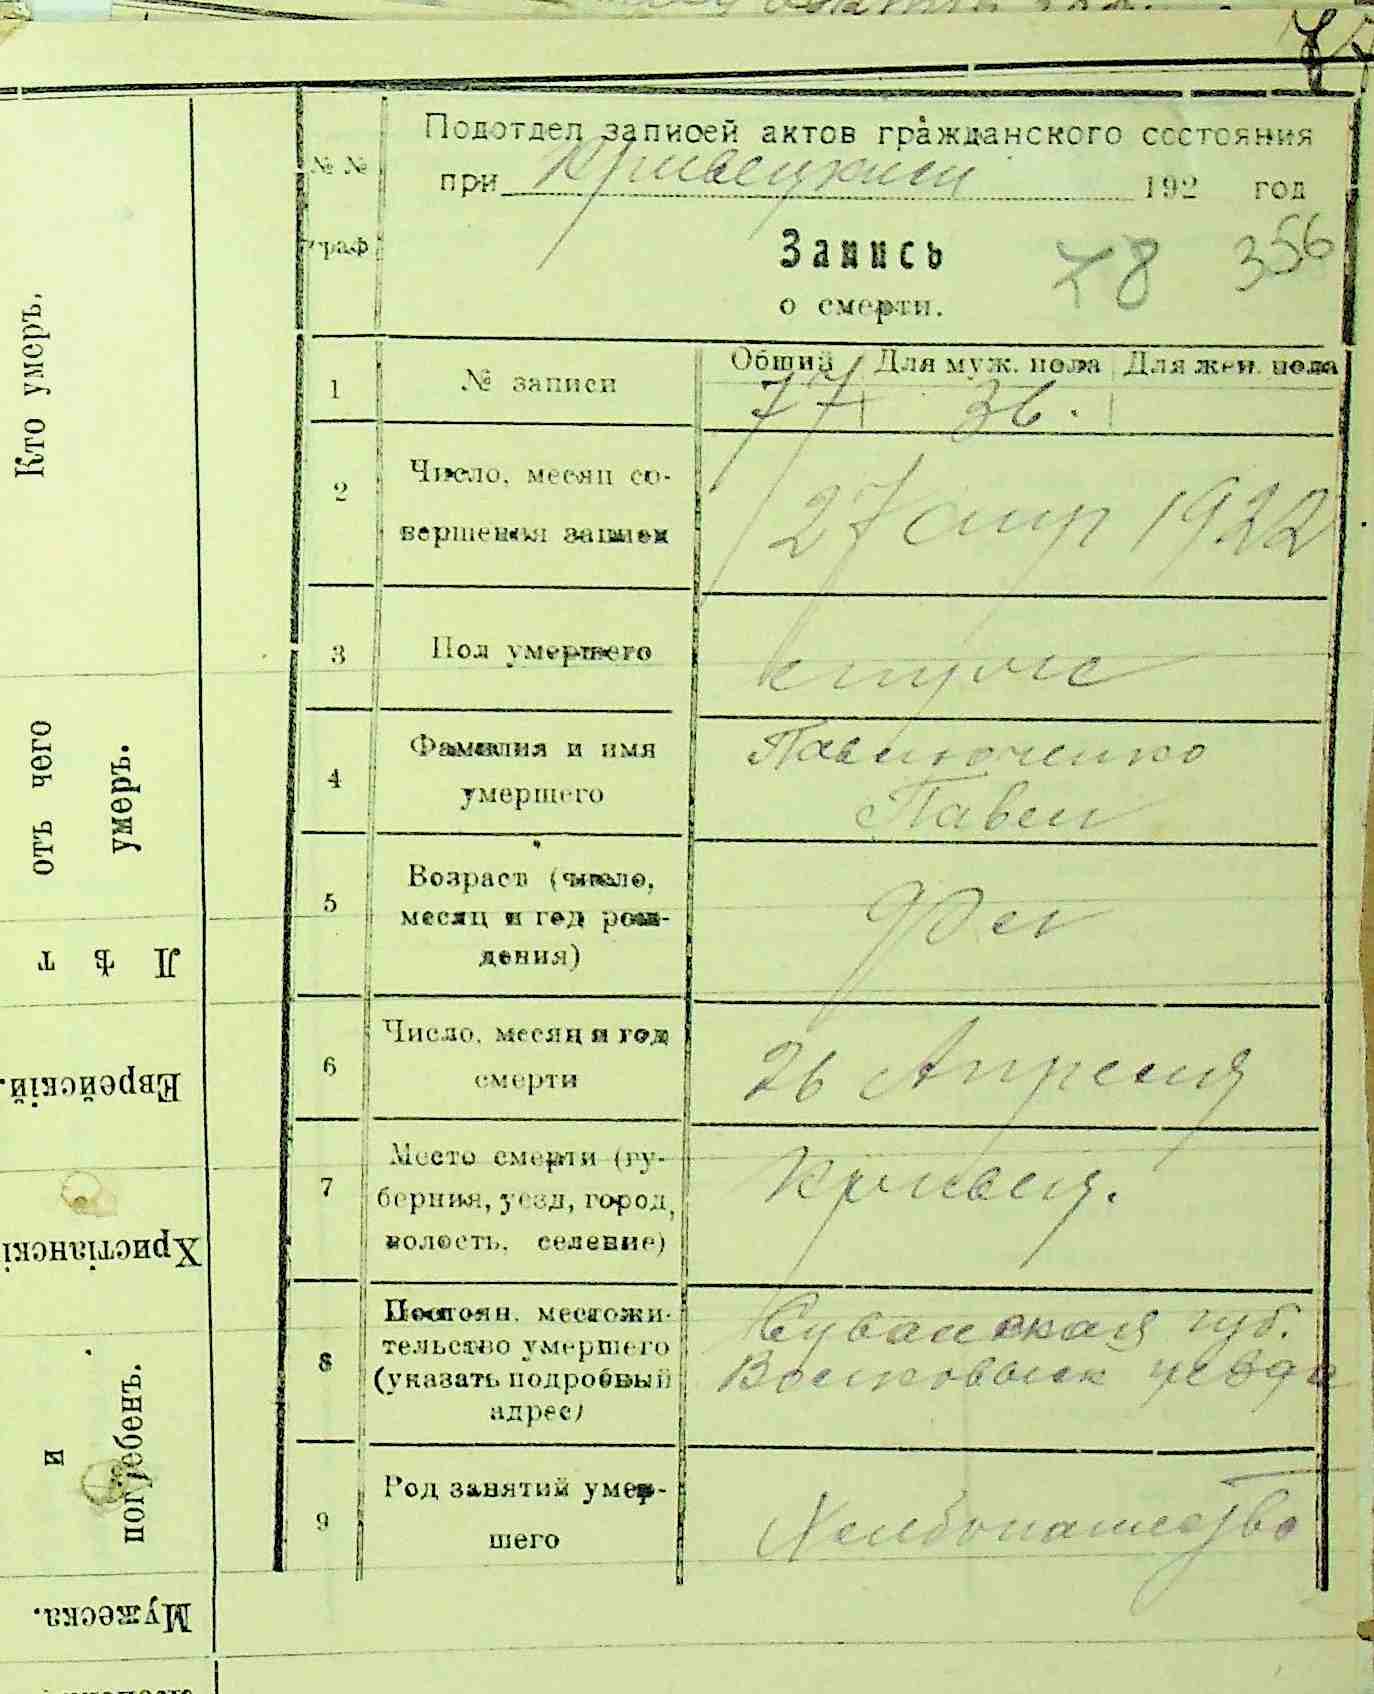 Подотдел записей актов гражданского состояния
при Кривецким 192 год
№ №
граф
Запись
о смерти.
78 356
1 № записи
Общий Для муж. пола Для жен. пола
77 36.
2 Число, месяц со-
вершения записи
27 апр 1922
3 Пол умершего
4 Фамилия и имя
умершего
Павлюченко
Павел
5 Возраст (число,
месяц и год рож-
дения)
6 Число, месяц и год
смерти
26 Апреля
7 Место смерти (гу-
берния, уезд, город,
волость, селение)
8 Постоян. местожи-
тельство умершего
(указать подробный
адрес)
губ.
уезда
9 Род занятий умер-
шего
Хлебопашество
Кто умеръ,
отъ чего
умеръ.
Лѣт
Еврейскій.
Христіанскі
и
погребенъ.
Мужеска.